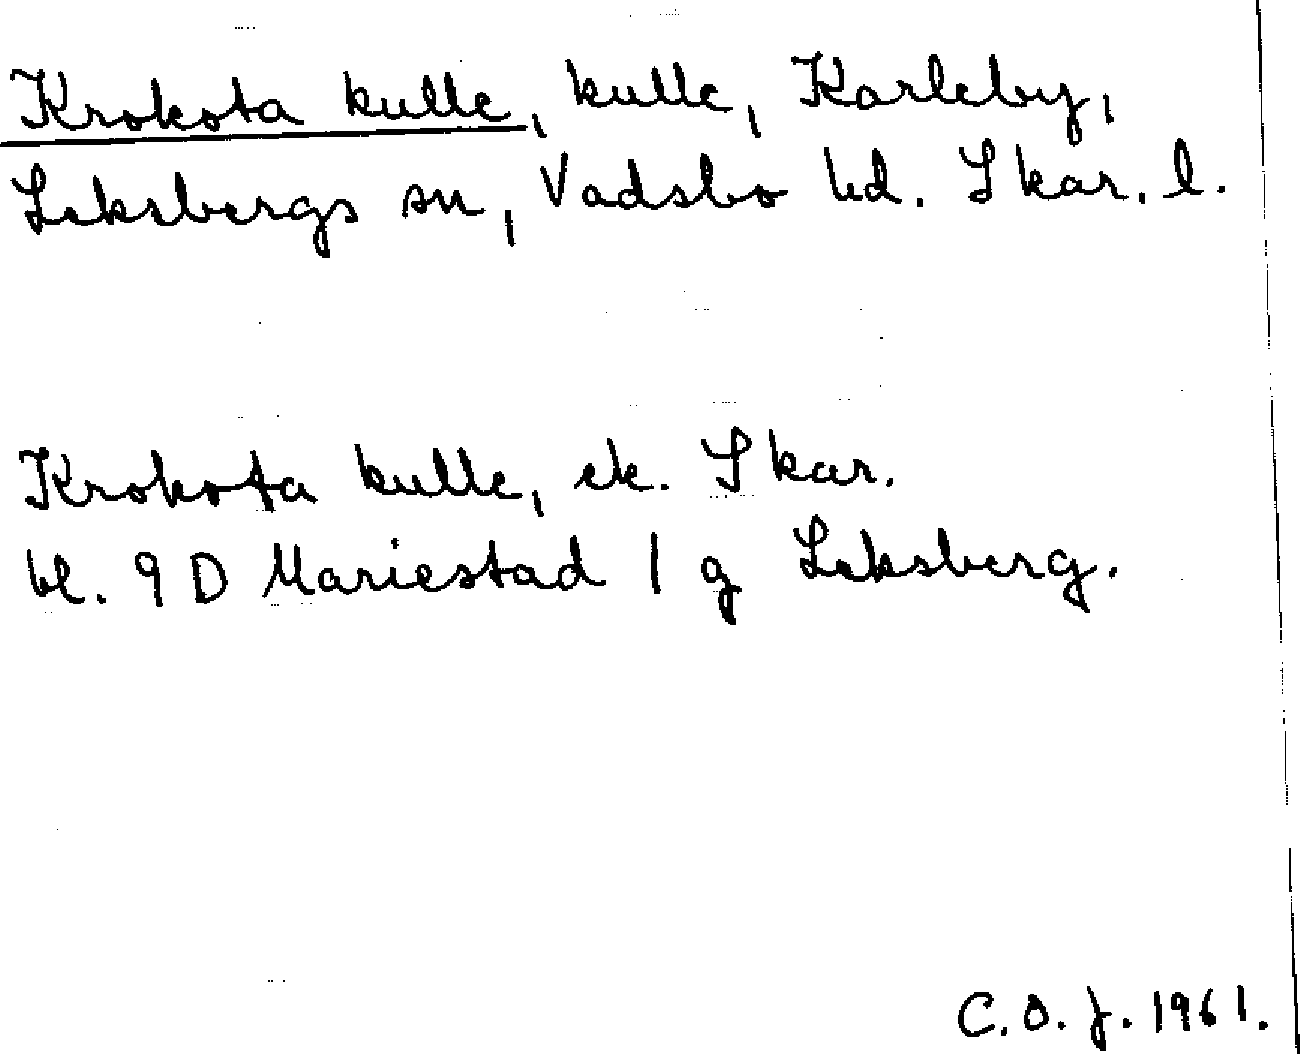 Krokota kulle, kulle, Karleby,
Leksbergs sn, Vadsbo hd. Skar. l.
Krokota kulle, ek. Skar.
bl. 9 D Mariestad 1 g Leksberg.
C. O. J. 1961.